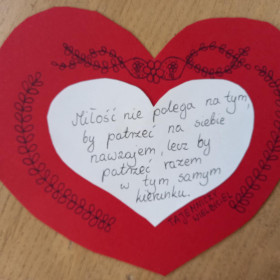 Miłość nie polega na tym,
by patrzeć na siebie
nawzajem, lecz by
patrzeć razem
w tym samym
kierunku.